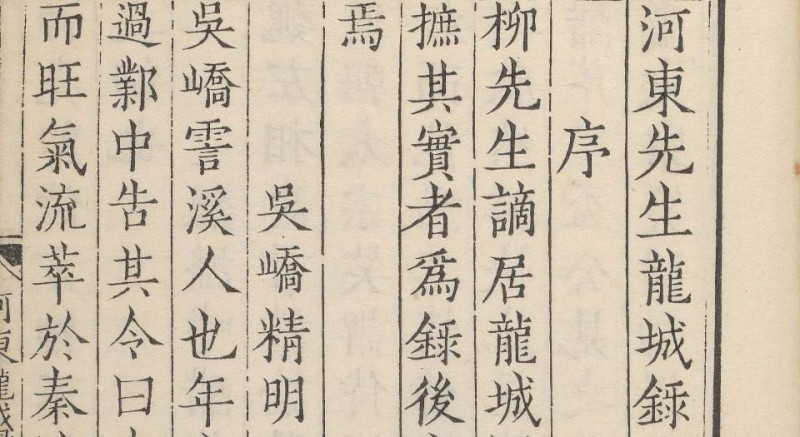 河東先生龍城錄
序
柳先生謫居龍城
摭其實者爲錄後
焉
吳嶠精明
吳嶠霅溪人也年
過鄴中告其令曰
而旺氣流萃於秦
河東龍城